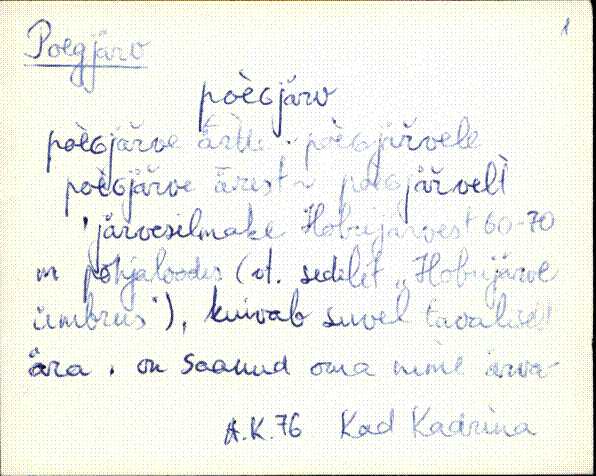 Poegjärv 1
poègjärv
poègjärve ärde ~ poègjärvele
poègjärve ärest ~ poegjärvelt
'järvesilmake Hobujärvest 60-70
m põhjaloodes (vt. sedelit „Hobujärve
ümbrus"), kuivab suvel tavaliselt
ära. on saanud oma nime arva-
A.K. 76 Kad Kadrina